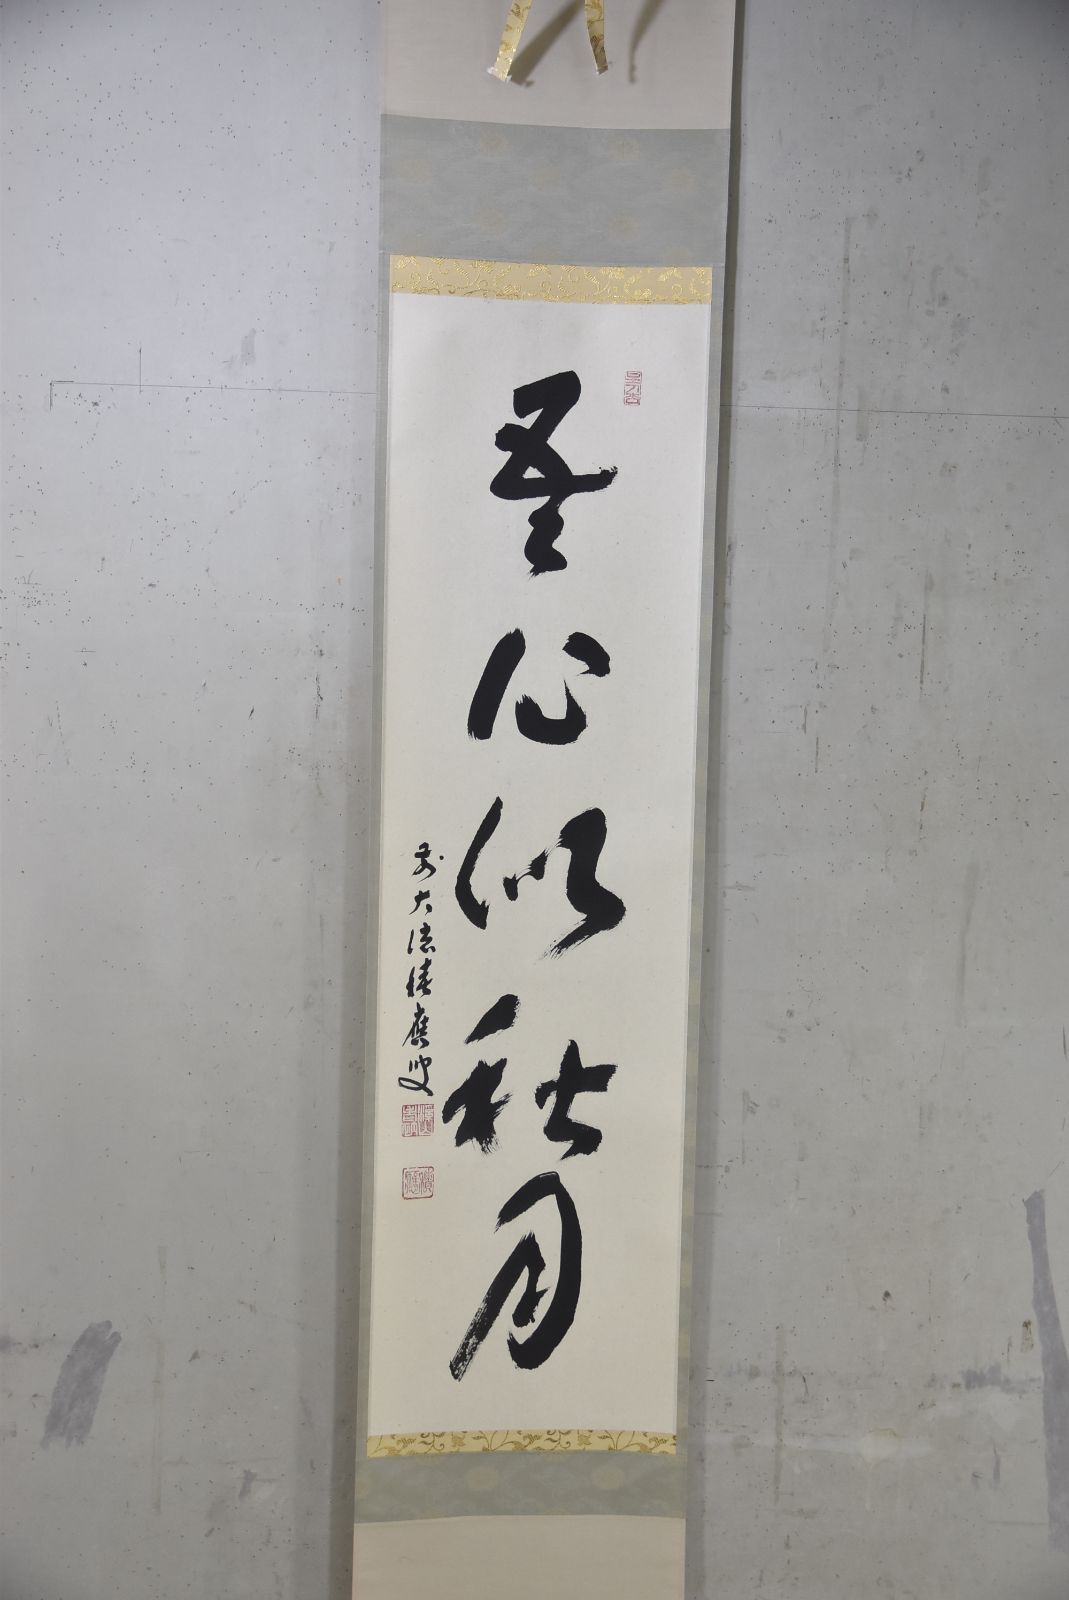 吾心似秋月
前大徳積應叟